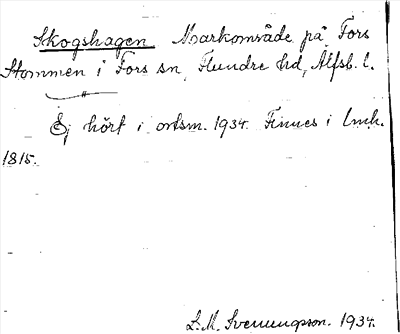 Skogshagen Markområde på Fors
Stommen i Fors sn, Flundre hd, Älfsb. l.
Ej hört i ortsm. 1934. Finnes i Lmh.
1815.
L. M. Svenungsson. 1934.